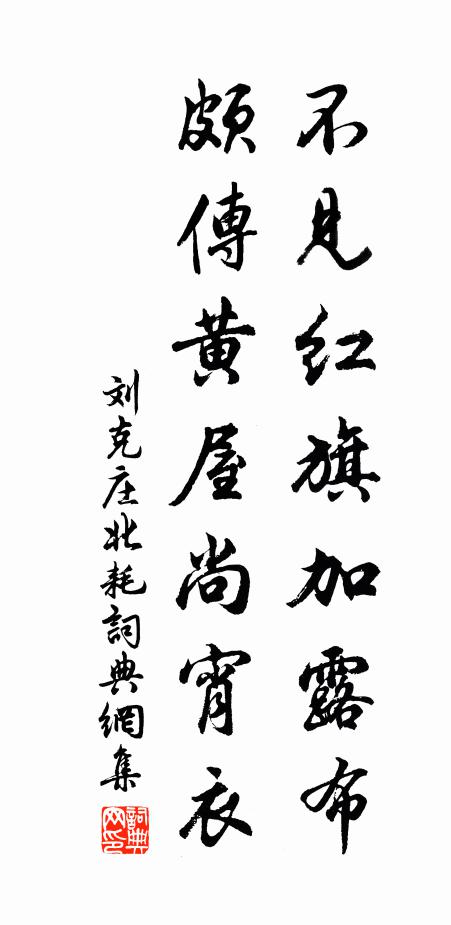 不见红旗加露布
颇传黄屋尚宵衣
刘克庄北耗词典網集
詞典网印